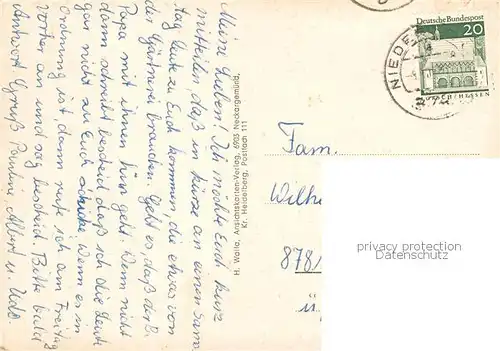 Meine Lieben! Ich möchte Euch kurz
mitteilen, daß in kürze an einen Sams
tag Leute zu Euch kommen, die etwas von
der Gärtnerei brauchen. Geht es, daß der B.
Papa mit ihnen hin geht. Wenn nicht
dann schreibt bescheid daß ich die Leute
gar nicht zu Euch schicke. Wenn es in
Ordnung ist, dann rufe ich am Freitag
vorher an und sag bescheid. Bitte bald
Antwort Gruß Pauline Albert u. Udo.
H. Walla, Ansichtskarten-Verlag, 6903 Neckargemünd,
Kr. Heidelberg, Postfach 111
Deutsche Bundespost
20
NIEDE
Fam.
Wilhe
878
ü
privacy protection
Datenschutz